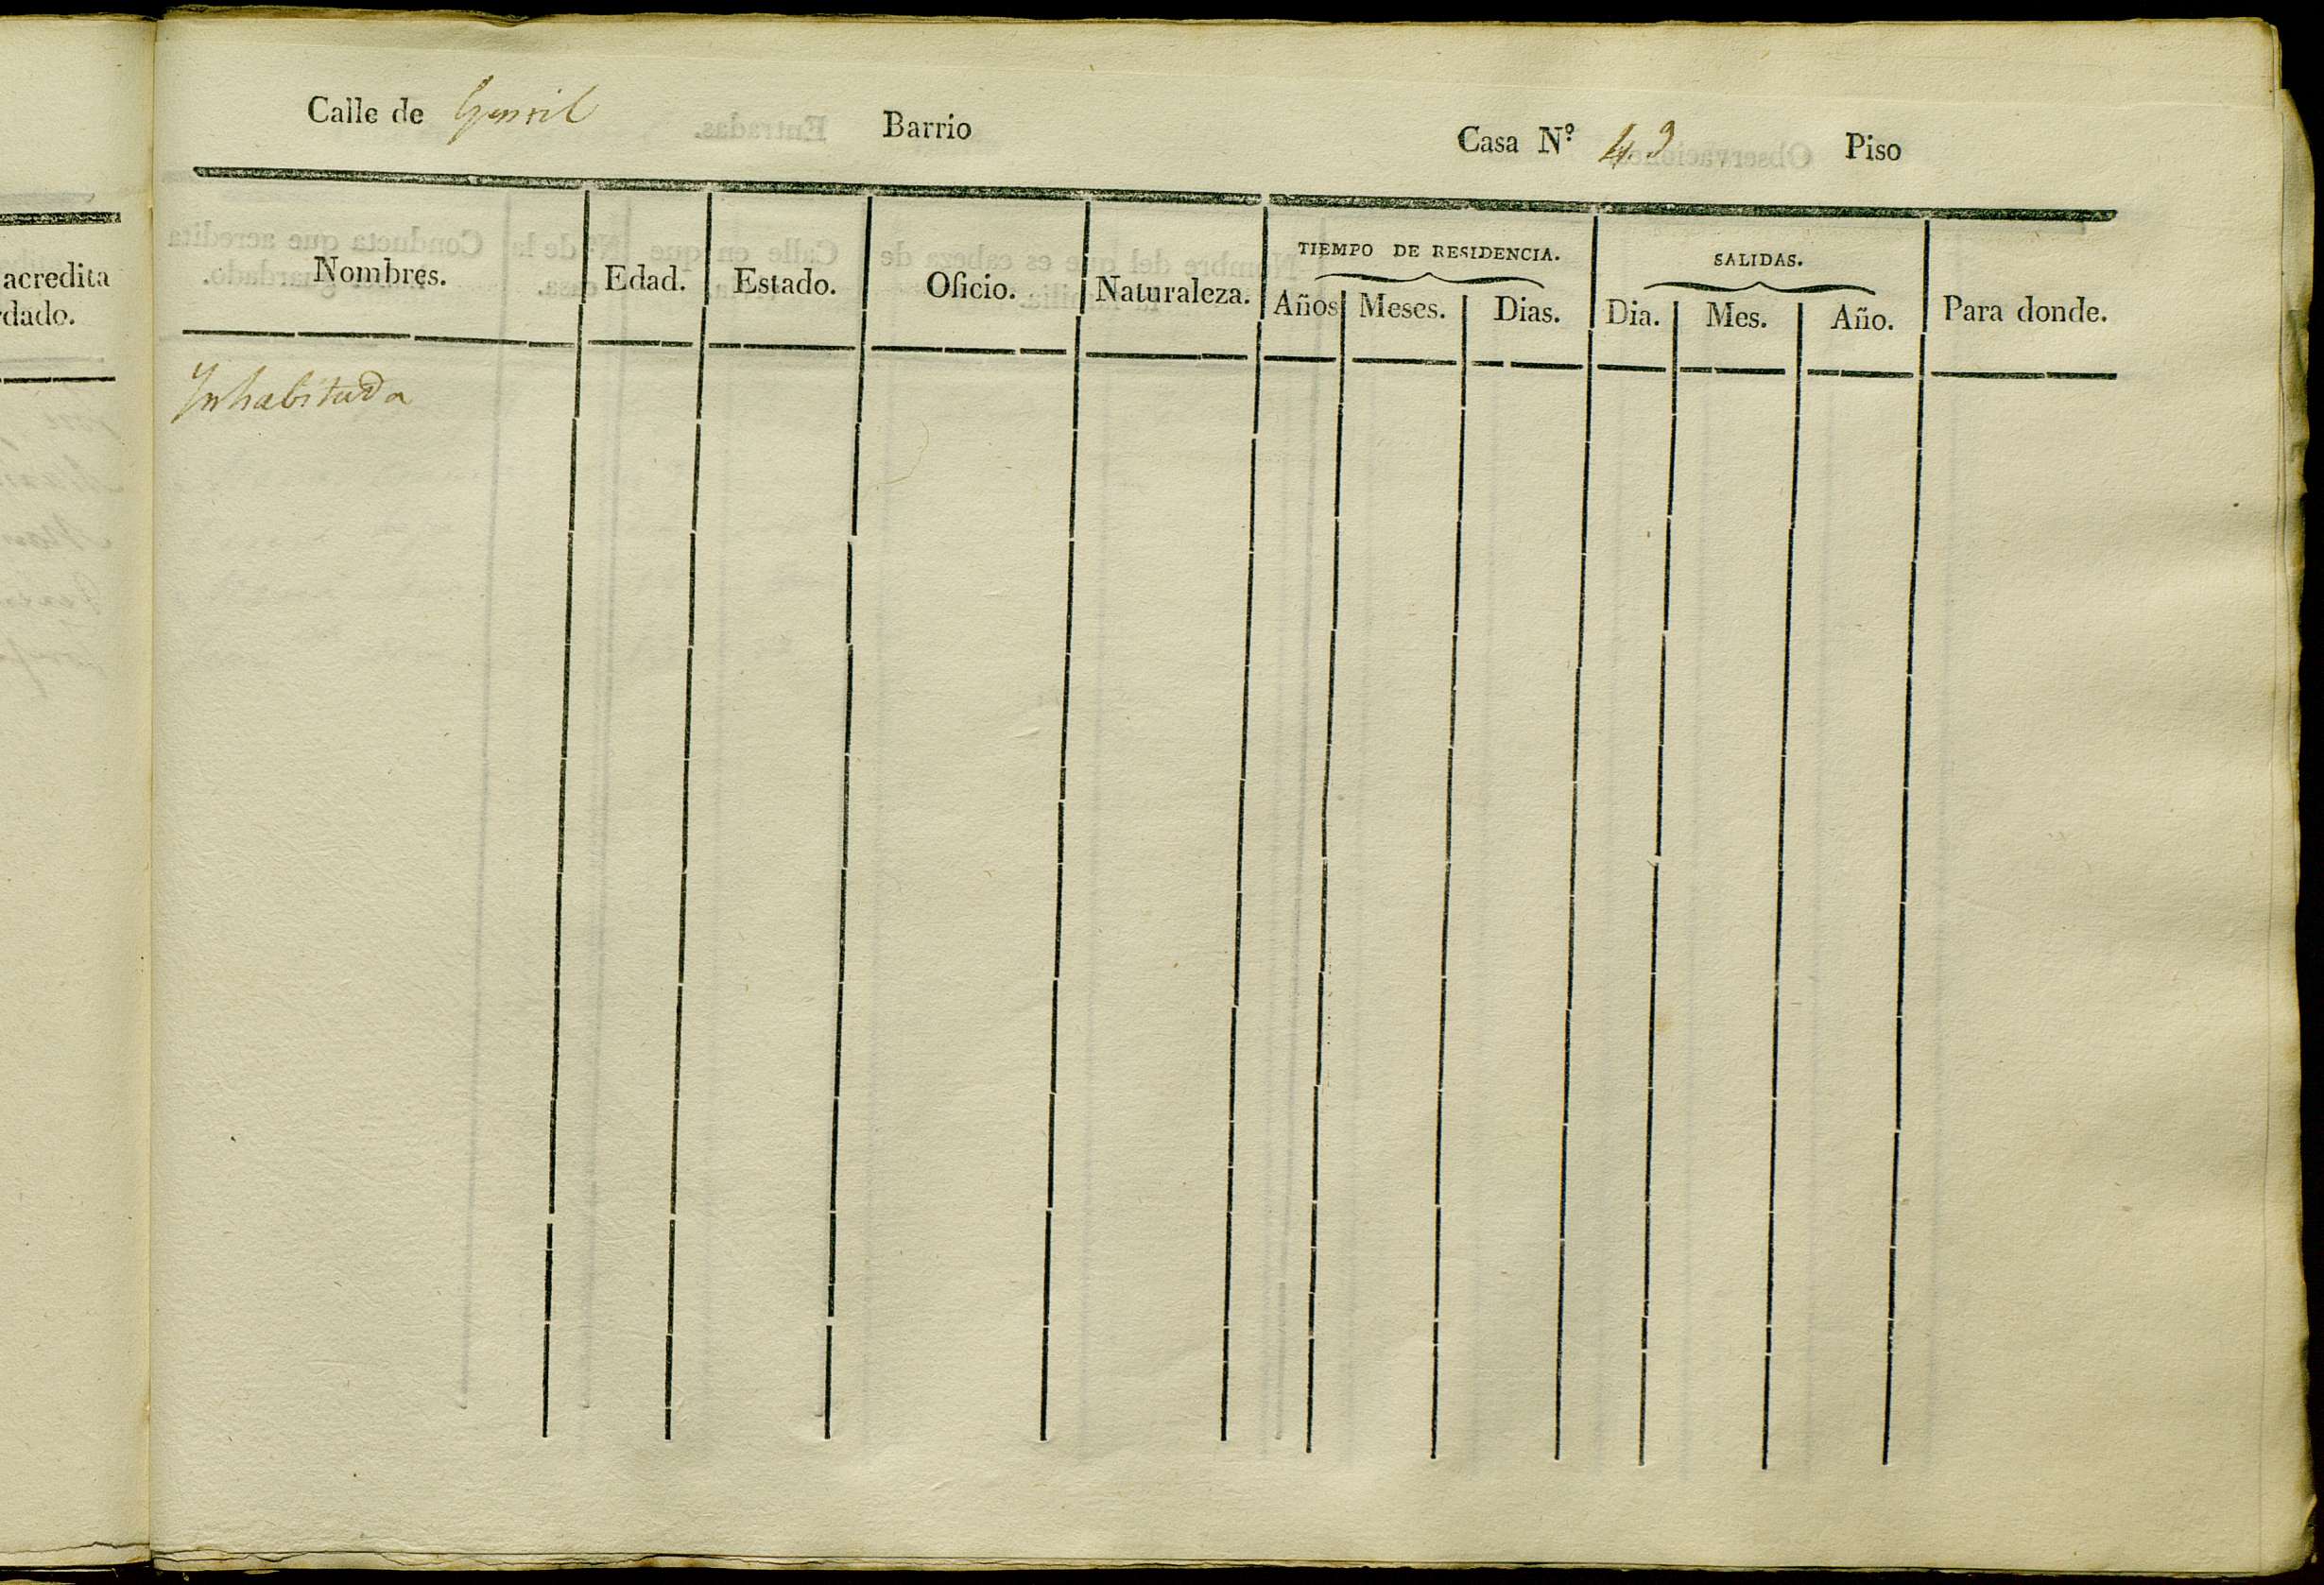 Calle de Genril Barrio Casa N.º 43 Piso
Nombres. Edad. Estado. Oficio. Naturaleza. TIEMPO DE RESIDENCIA. SALIDAS. Para donde.
Años Meses. Dias. Dia. Mes. Año.
Inhabitada
acredita
dado.